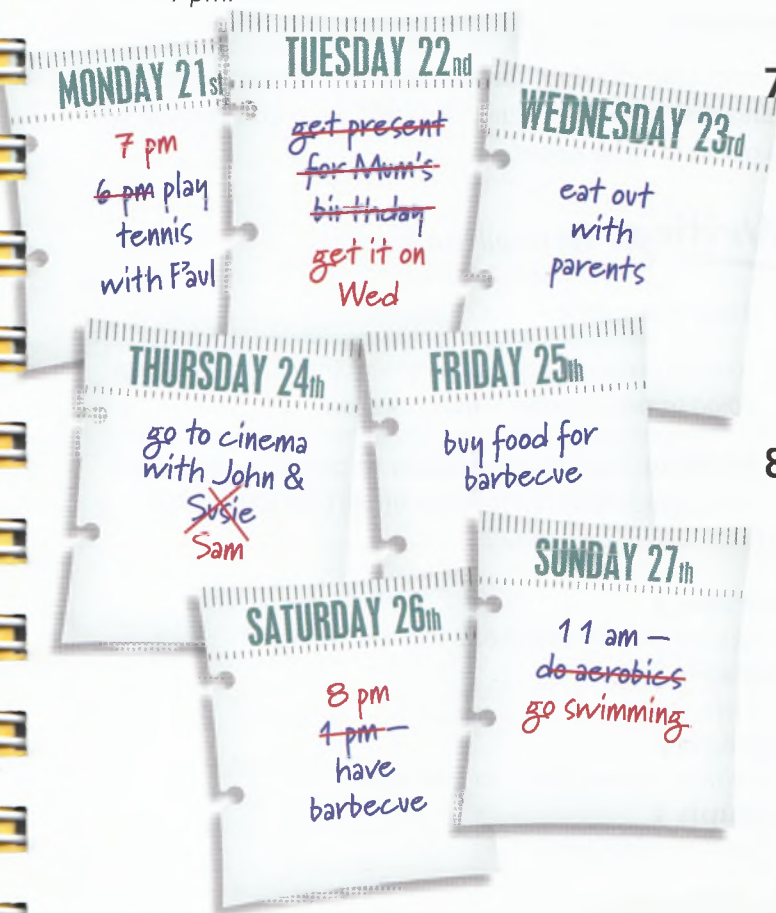 1 pm.
MONDAY 21st
7 pm
6 pm play
tennis
with Paul
TUESDAY 22nd
get present
for Mum's
birthday
get it on
Wed
WEDNESDAY 23rd
eat out
with
parents
7
THURSDAY 24th
go to cinema
with John &
Susie
Sam
FRIDAY 25th
buy food for
barbecue
8
SATURDAY 26th
8 pm
1 pm –
have
barbecue
SUNDAY 27th
11 am –
do aerobics
go swimming